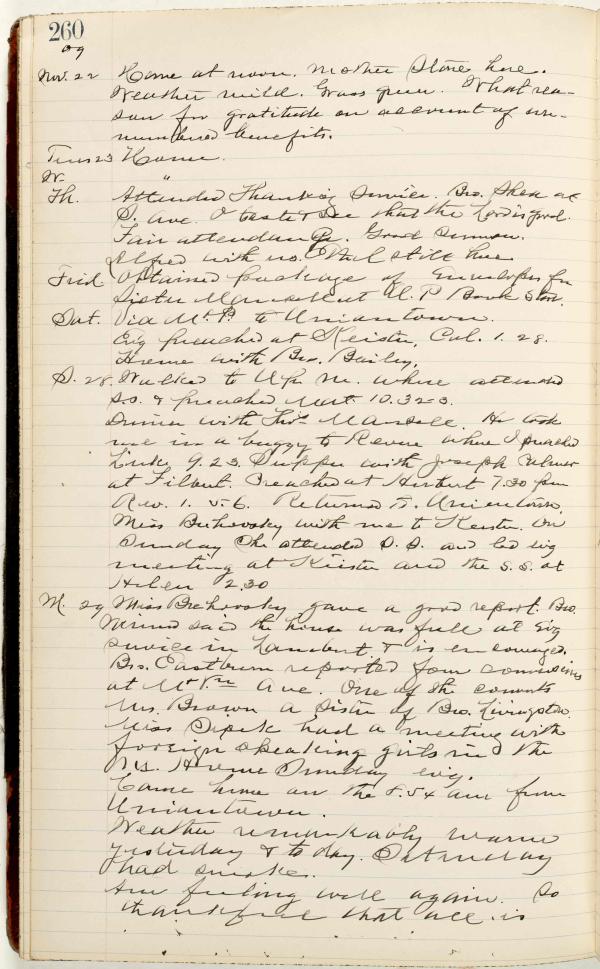 260
09
Nov. 22 Home at noon. Mother Stone here.
Weather mild. Grass green. What rea-
son for gratitude on account of un-
numbered benefits.
Tues 23 Home.
W. "
Th. Attended Thanksg service. Bro. Shea at
S. Ave. O taste & see that the Lord is good.
Fair attendance. Good sermon.
Alfred with us. Ethel still here
Frid Obtained package of Envelopes for
Sister at U. P Book Store.
Sat. Via Mt. P. to Uniontown.
Evg preached at Keister, Col. 1. 28.
Home with Bro. Bailey.
S. 28. Walked to Upr M. where attended
S.S. & preached Matt 10.32-3.
Dinner with Thos. He took
me in a buggy to Revere where I preached
Luke 9.23. Supper with Joseph Palmer
at Filbert. Preached at Herbert 7.30 pm
Rev. 1. 5.6. Returned to Uniontown.
Miss Buhovsky with me to Keister. On
Sunday she attended S. S. and led evg
meeting at Keister and the S.S. at
Helen 2.30
M. 29 Miss Buhovsky gave a good report. Bro.
said the house was full at Evg
service in Lambert & is encouraged.
Bro. Eastburn reported four conversions
at Mt Vn Ave. One of the converts
Mrs. Brown a sister of Bro. Livingston.
Miss Sipek had a meeting with
foreign speaking girls in the
Home Sunday evg.
Came home on the 8.54 am from
Uniontown.
Weather remarkably warm
yesterday & to day. Saturday
had smoke.
Am feeling well again. So
thankful that all is